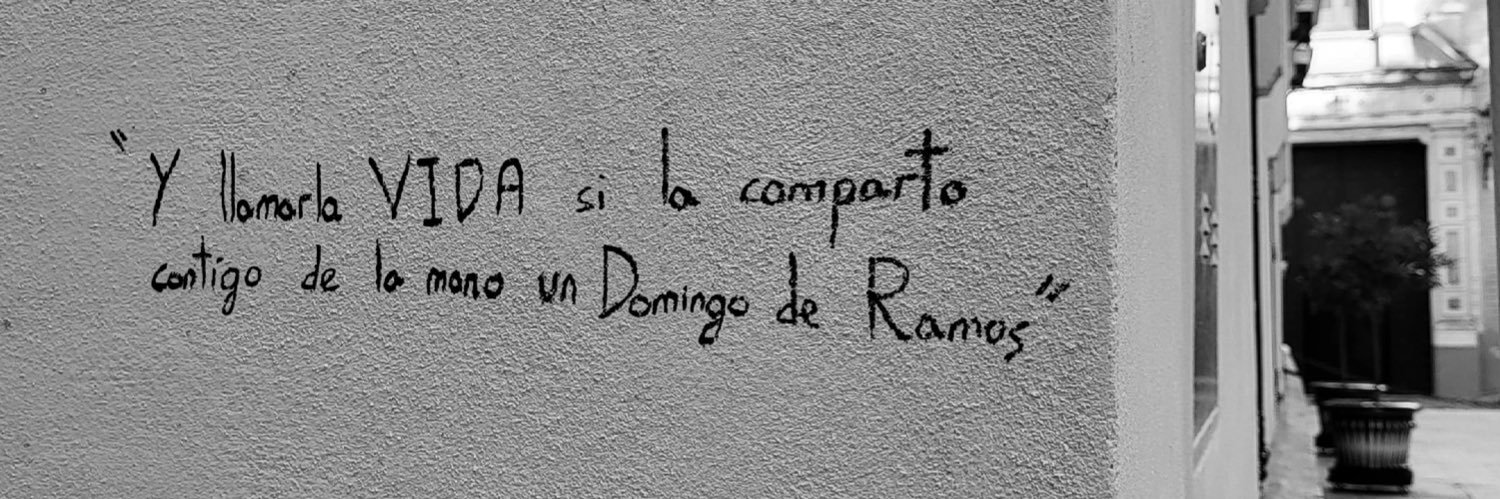 "Y llamarla VIDA si la comparto
contigo de la mano un Domingo de Ramos"